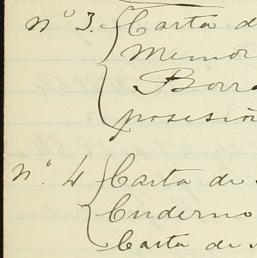 nº 3. Carta d
Memor
Borra
posesión
nº 4 Carta de
Cuderno
Carta de